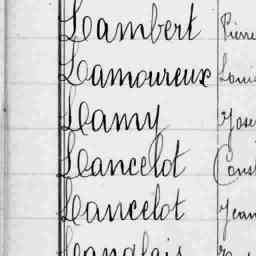 Lambert Pierre
Lamoureux Louis
Lamy
Lancelot
Lancelot Jean
Langlais